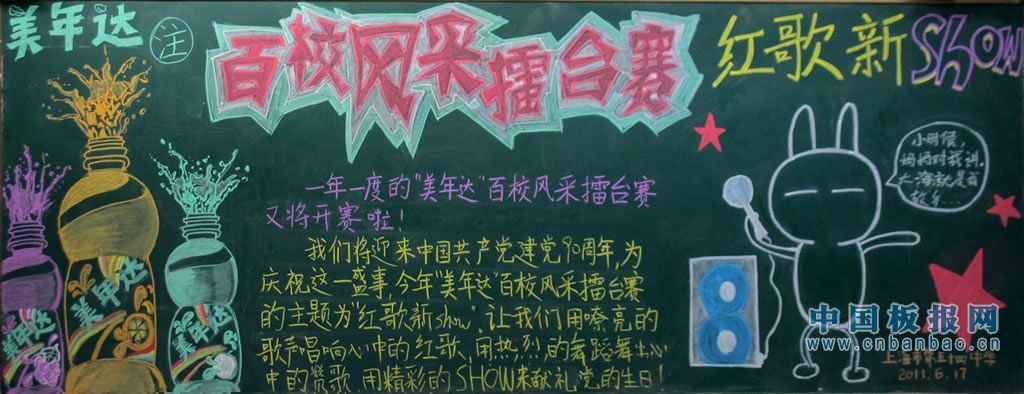 美年达
注
百校风采擂台赛
红歌新Show
一年一度的"美年达"百校风采擂台赛
又将开赛啦!
我们将迎来中国共产党建党90周年,为
庆祝这一盛事,今年"美年达"百校风采擂台赛
的主题为"红歌新show",让我们用嘹亮的
歌声唱响心中的红歌,用热烈的舞蹈舞出心
中的赞歌,用精彩的SHOW来献礼党的生日!
小时候,
妈妈对我讲,
大海就是我
故乡...
美年达
美年达
美年达
8
中国板报网
www.cnbanbao.cn
上海市第五十四中学
2011.6.17